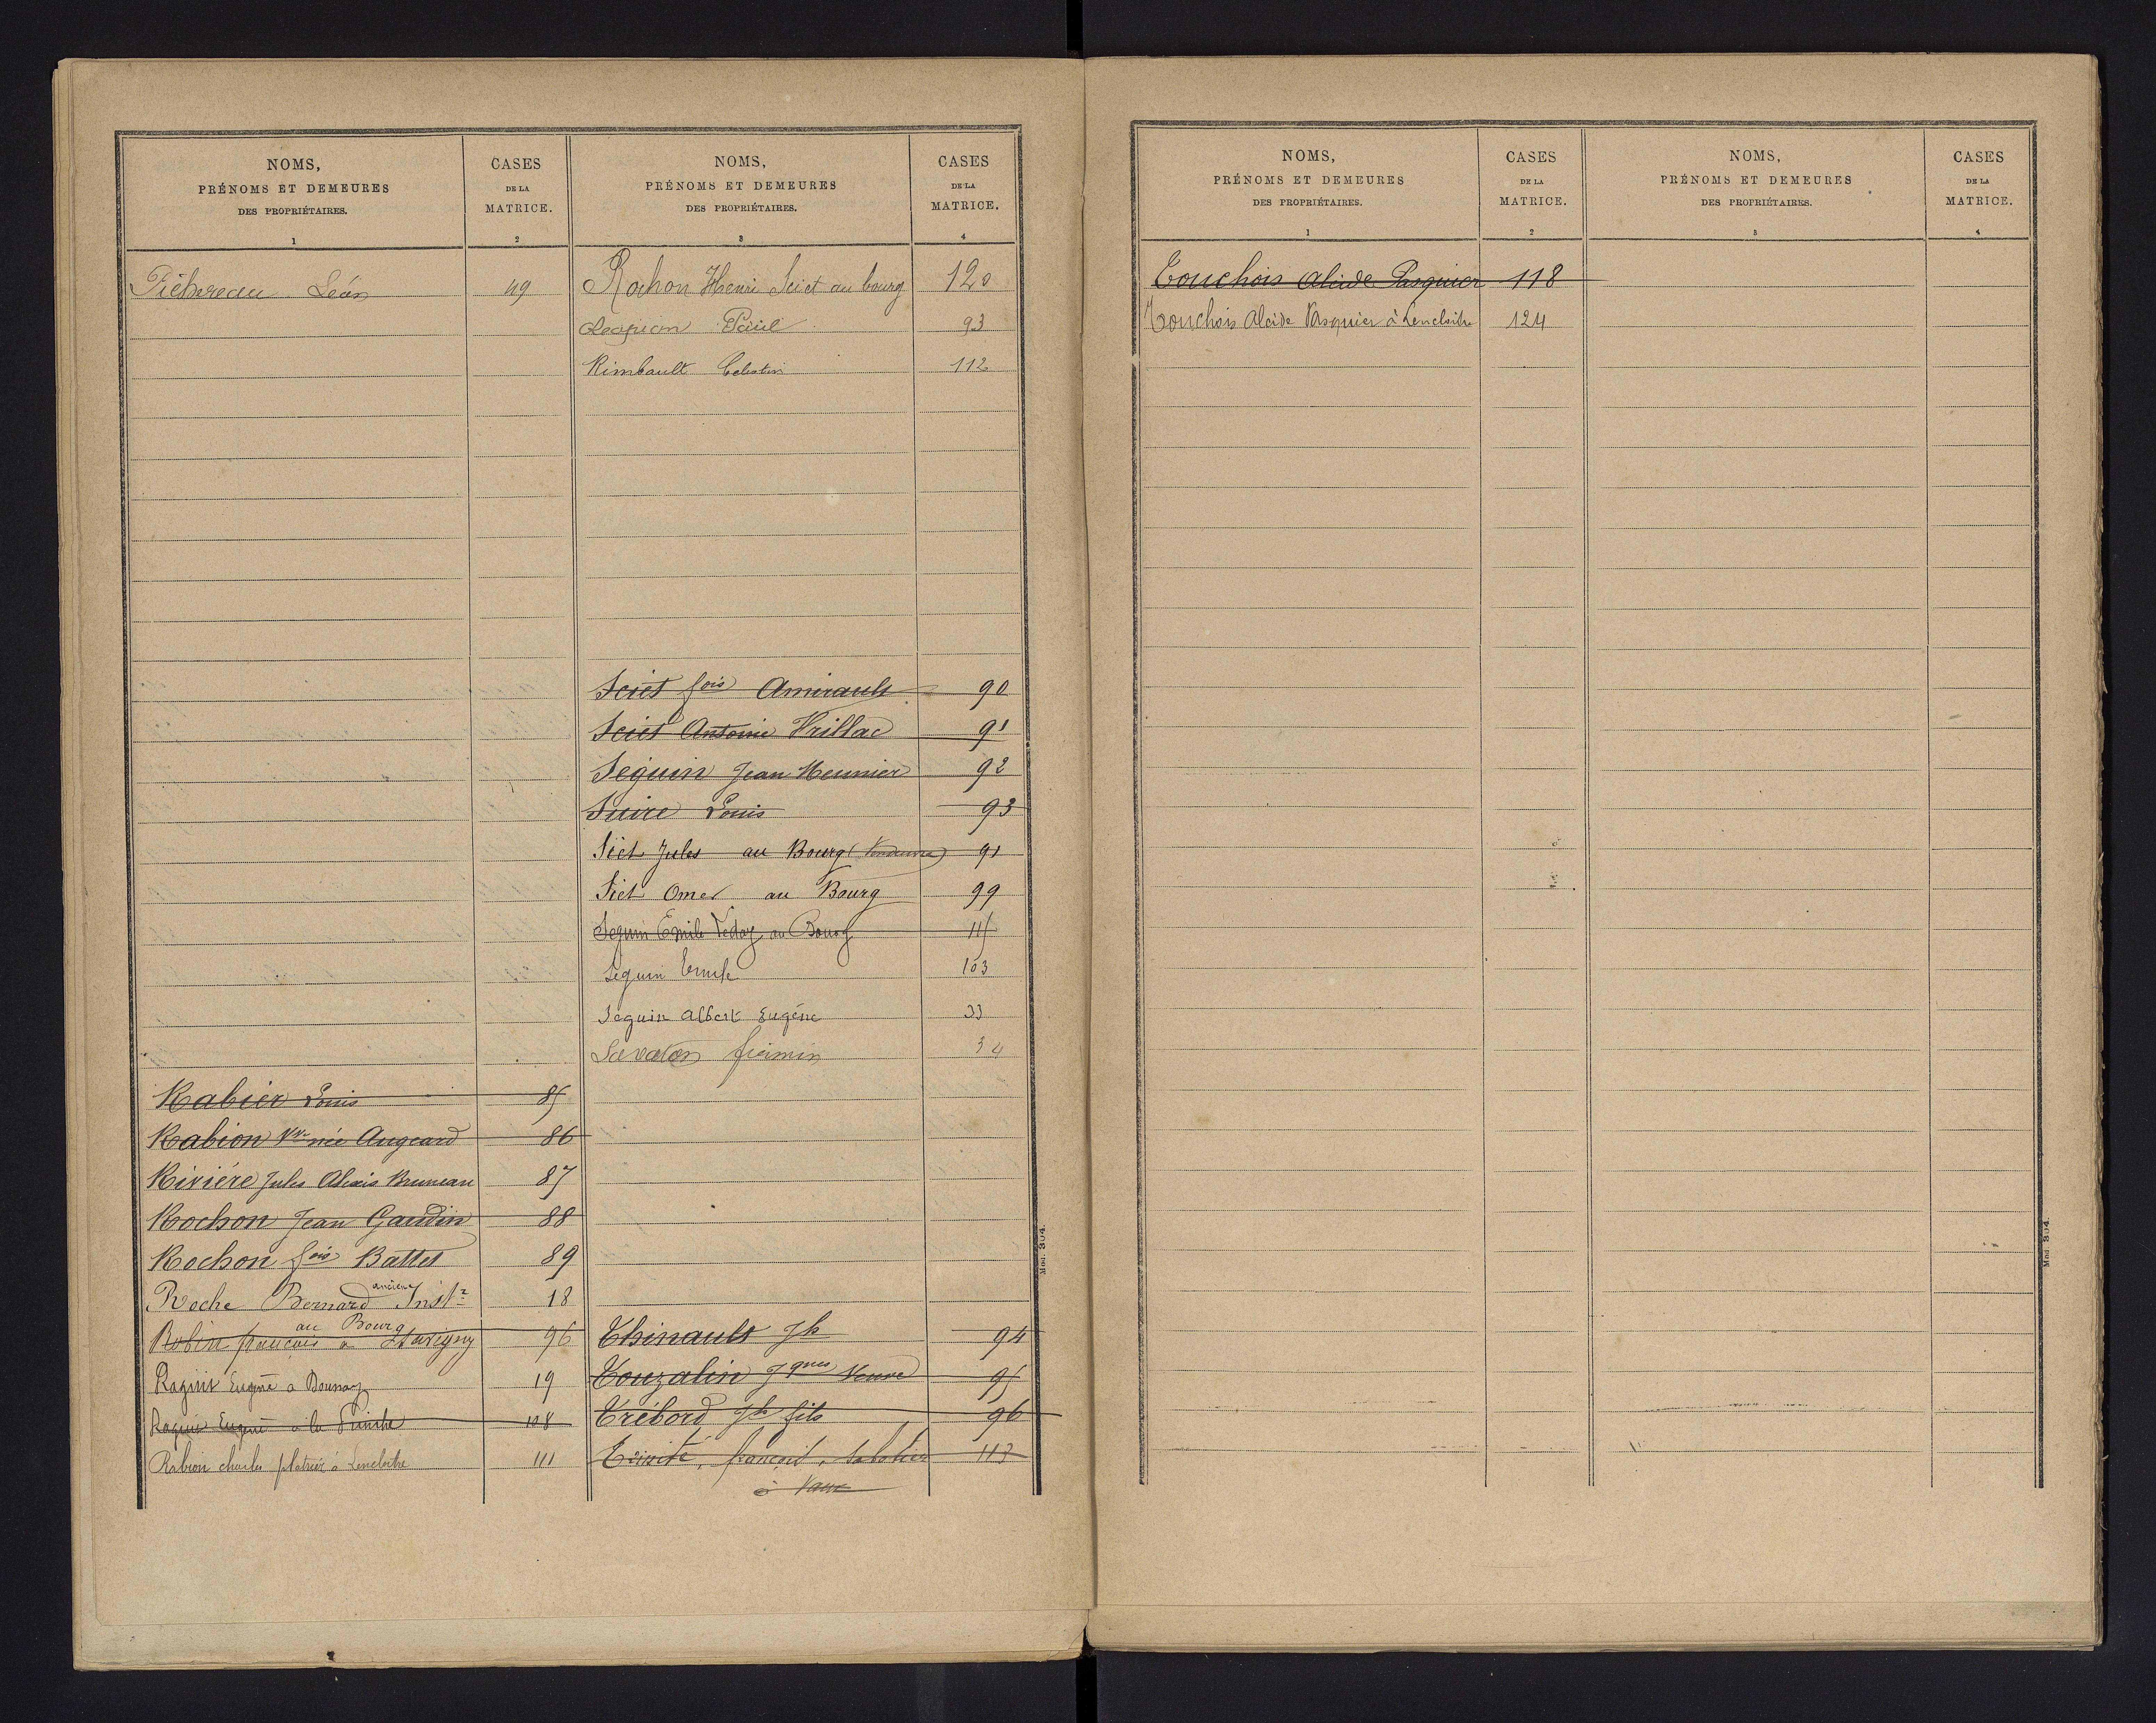 NOMS,
PRÉNOMS ET DEMEURES
DES PROPRIÉTAIRES.
1
CASES
DE LA
MATRICE.
2
Pichereau Léon 49
Rabier Louis 85
Rabion Vve née Augeard 86
Rivière Jules Alexis Bruneau 87
Rochon Jean Gaudin 88
Rochon fois Battet 89
ancien
Roche Bernard Instr 18
au Bourg
Robin francois a 96
Raguit Eugène a Doussay 19
Raguit Eugène à la 108
Rabion charles platrier à Lencloitre 111
NOMS,
PRÉNOMS ET DEMEURES
DES PROPRIÉTAIRES.
3
CASES
DE LA
MATRICE.
4
Rochon Henri Sciet au bourg 120
Paul 93
Rimbault Celestin 112
Sciet fois Amirault 90
Sciet Antoine Vrillac 91
Seguin Jean Meunier 92
Suire Louis 93
Siet Jules au Bourg (Vendeuvre) 91
Siet Omer au Bourg 99
Seguin Emile au Bourg 115
Seguin Emile 103
Seguin Albert Eugène 33
Savaton firmin 34
Thinault Jh 94
Touzalin Jques Veuve 95
Trébord Jh fils 96
Trinité, françois, Sabotier 113
à Vaux
Mod. 304.
NOMS,
PRÉNOMS ET DEMEURES
DES PROPRIÉTAIRES.
1
CASES
DE LA
MATRICE.
2
Touchois Alcide Pasquier 118
Touchois Alcide Pasquier à Lencloitre 124
NOMS,
PRÉNOMS ET DEMEURES
DES PROPRIÉTAIRES.
3
CASES
DE LA
MATRICE.
4
Mod. 304.